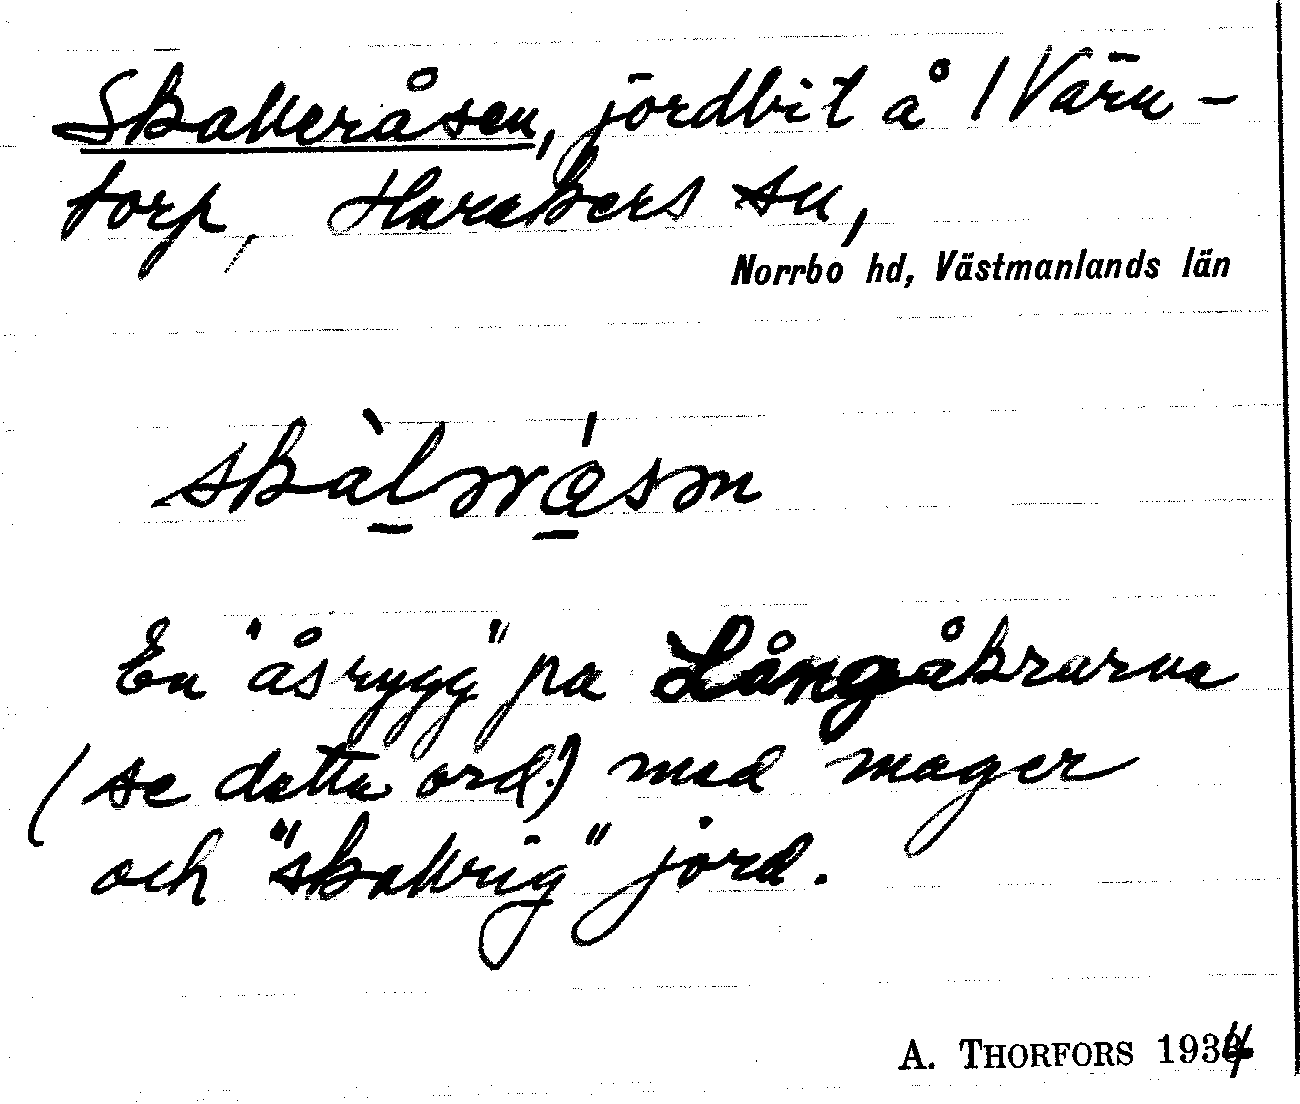 Skalleråsen, jordbit å 1 Värn-
torp, Harakers sn,
Norrbo hd, Västmanlands län
En "åsrygg" på Långåkrarna
(se detta ord.) med mager
och "skallrig" jord.
A. THORFORS 1934